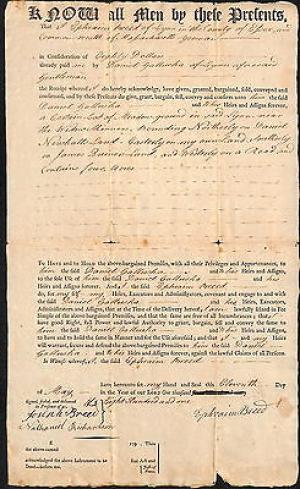 KNOW all Men by these Presents,
That I Ephraim Breed of Lynn in the County of Essex and
Commonwealth of Massachusetts Yeoman
in Consideration of Eighty Dollars
already paid me by Daniel Galluisha of Lynn aforesaid
Gentleman
the Receipt whereof I do hereby acknowledge, have given, granted, bargained, sold, conveyed and
confirmed, and by these Presents do give, grant, bargain, sell, convey and confirm unto him the said
Daniel Galluisha and his Heirs and Assigns forever,
a Certain Lot of Meadow ground in said Lynn near
the Bounding Northerly on Daniel
Newhalls Land Easterly on my own Land Southerly
on James Land, and Westerly on a Road and
Contains four Acres
To Have and to Hold the above-bargained Premises, with all their Privileges and Appurtenances, to
him the said Daniel Galluisha and his Heirs and Assigns,
to the sole Use of him the said Daniel Galluisha and his
Heirs and Assigns forever. And I the said Ephraim Breed
do, for my self my Heirs, Executors and Administrators, covenant and engage to and with
the said Daniel Galluisha and his Heirs, Executors,
Administrators and Assigns, that at the Time of the Delivery hereof, I am lawfully seized in Fee
Simple of the above bargained Premises, and that the same are free of all Incumbrances; that I have
good Right, full Power and lawful Authority to grant, bargain, sell and convey the same to
him the said Daniel Galluisha and his Heirs and Assigns,
to have and to hold the same in Manner and to the Use aforesaid; and that I and my Heirs
will warrant, secure and defend the above bargained Premises to him the said Daniel
Galluisha and to his Heirs and Assigns forever, against the lawful Claims of all Persons.
In Witness whereof, I the said Ephraim Breed
have hereunto set my Hand and Seal this Eleventh Day
of May in the Year of our Lord One thousand
Eight Hundred and one
Signed, Sealed, and delivered
in Presence of us
Breed
Nathaniel Richardson
Ephraim Breed
179 Then
the above-named
acknowledged the above Instrument to be
Deed—before me,
Act and